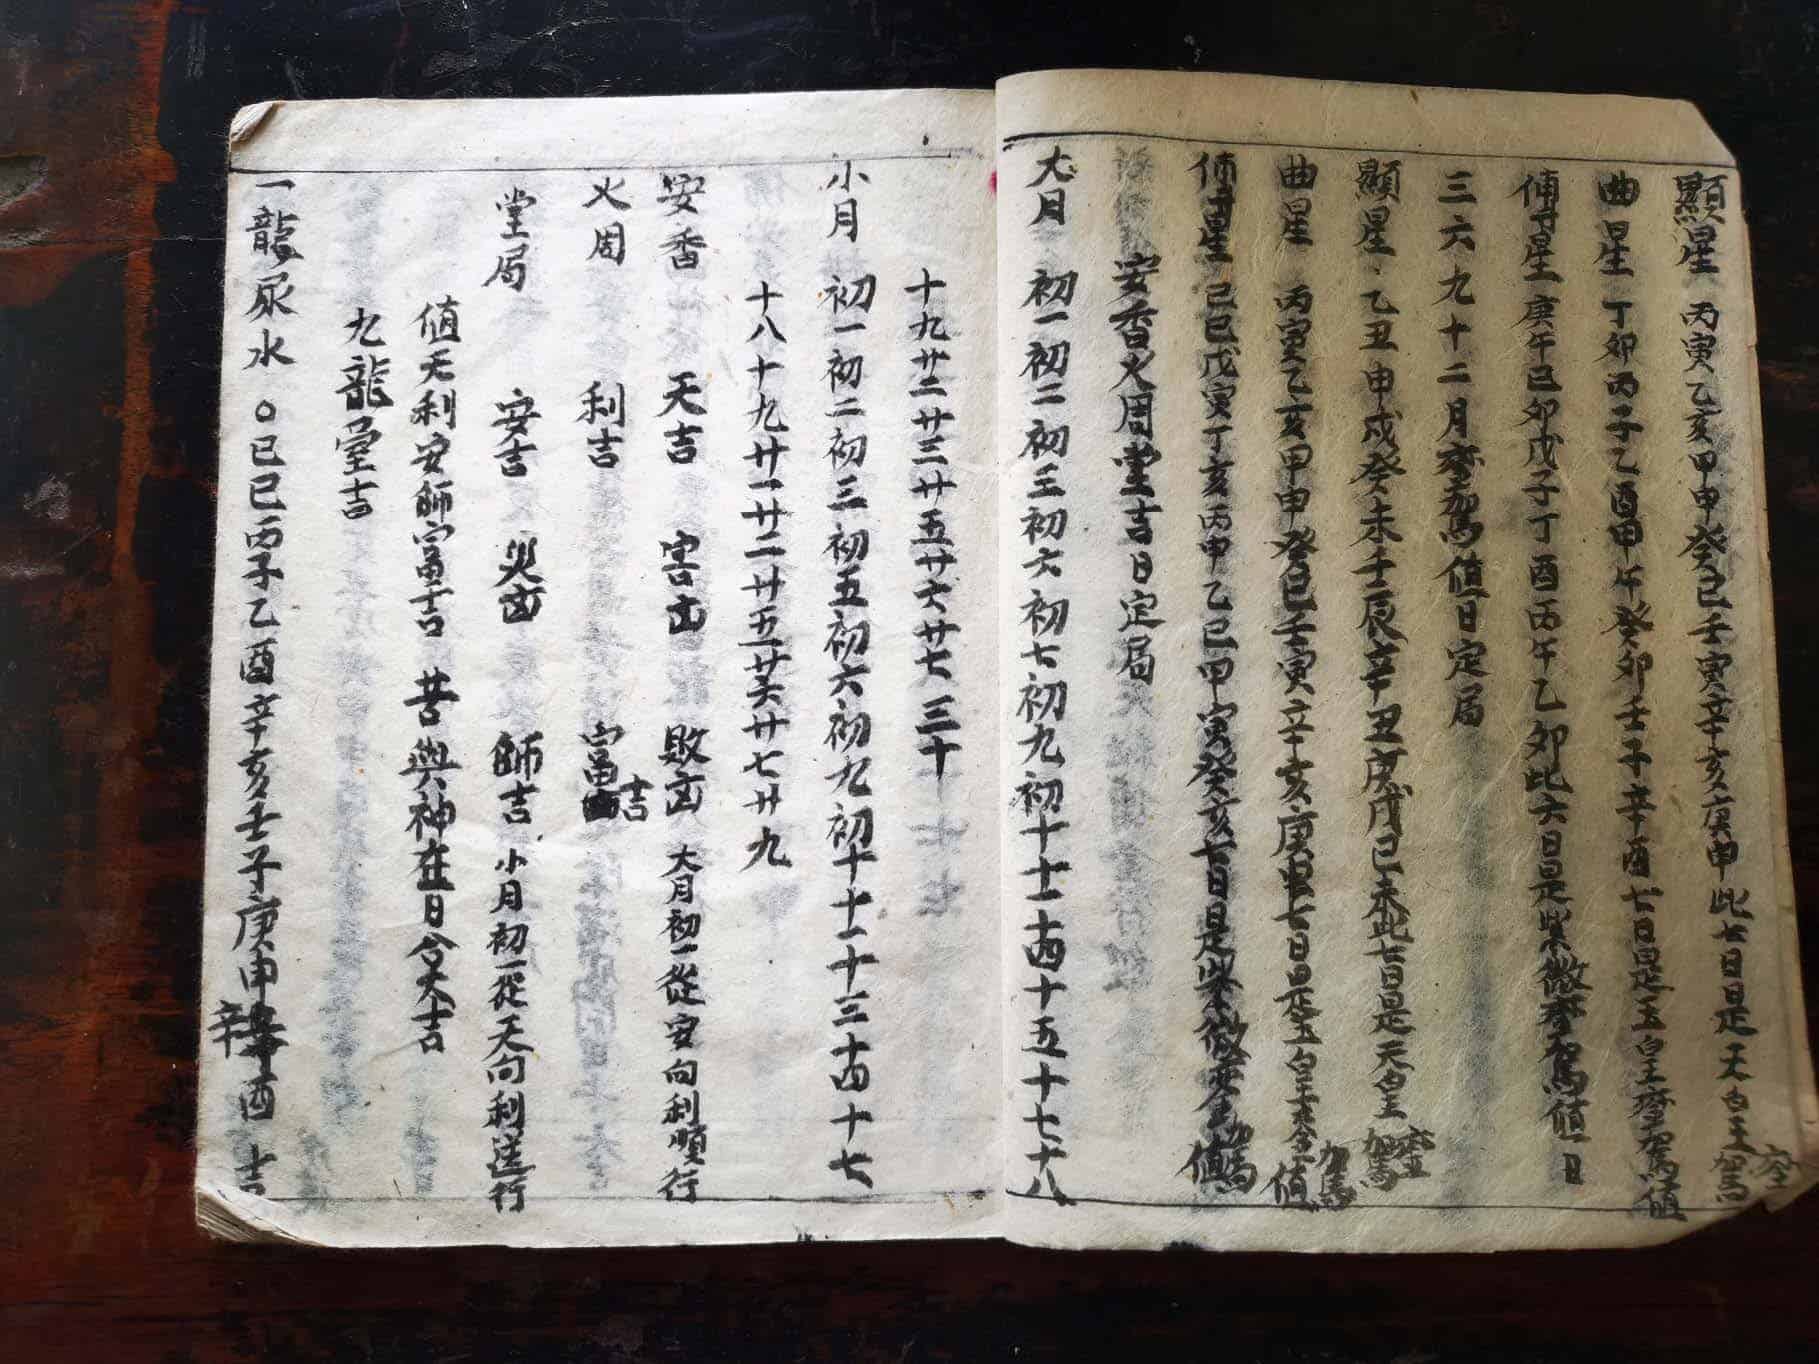 顯星 丙寅乙亥甲申癸巳壬寅辛亥庚申此七日是天皇鑾駕
曲星 丁卯丙子乙酉甲午癸卯壬子辛酉七日是玉皇鑾駕值
傅星 庚午己卯戊子丁酉丙午乙卯此六日是紫微鑾駕值日
三六九十二月鑾駕值日定局
顯星 乙丑甲戌癸未壬辰辛丑庚戌己未此七日是天皇鑾駕
曲星 丙寅乙亥甲申癸巳壬寅辛亥庚申七日是玉皇鑾駕值
傅星 己巳戊寅丁亥丙申乙巳甲寅癸亥七日是紫微鑾駕值
安香火周堂吉日定局
大月 初一初二初三初六初七初九初十十二十四十五十七十八
十九廿二廿三廿五廿六廿七三十
小月 初一初二初三初五初六初九初十十二十三十四十七
十八十九廿一廿二廿五廿六廿七廿九
安香 天吉 害凶 敗凶 大月初一從安向利順行
火周 利吉 富吉
堂局 安吉 災凶 師吉 小月初一從天向利逆行
值天利安師富吉 若與神在日合大吉
九龍堂吉
一龍尿水 〇己巳丙子乙酉辛亥壬子庚申辛酉 吉